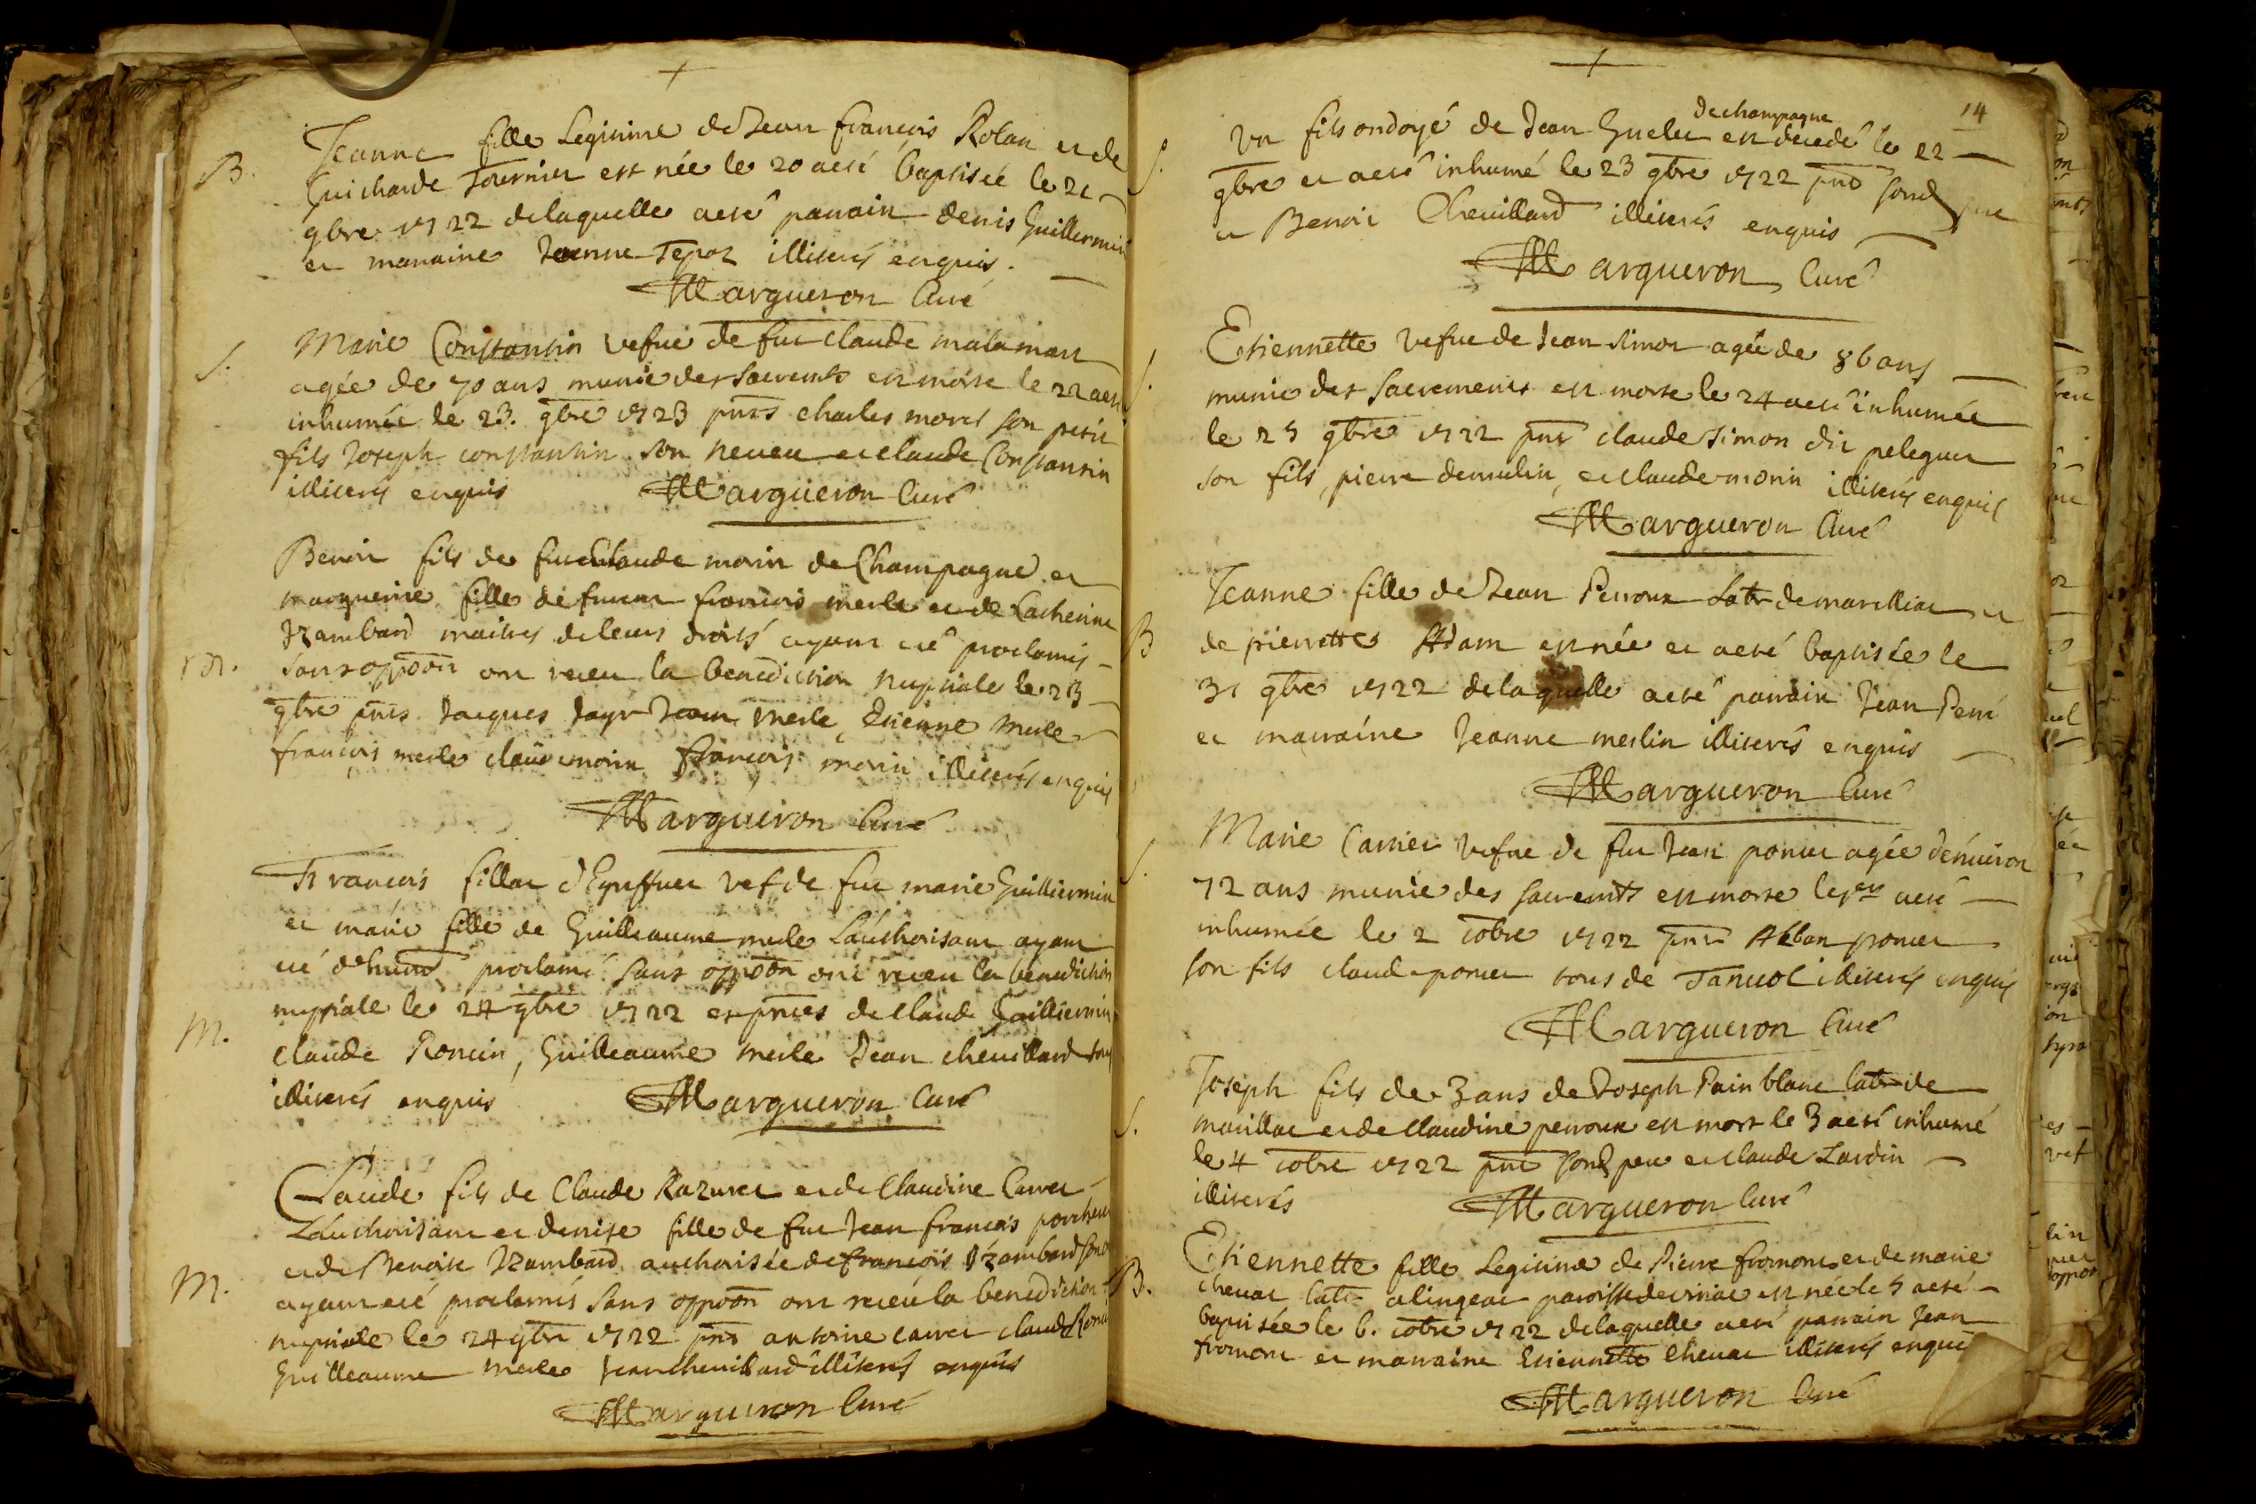 B.
Jeanne fille Legitime de Jean françois Rolan et de
Guicharde Tournier est née le 20 aeté baptisée le 21
gbre 1722 delaquelle aeté parrain denis Guillermin
et marraine Jeanne Tepoz illiterés enquis.
Margueron Curé
S.
Marie Constantin vefue de feu claude
agée de 70 ans munie des sacremts est morte le 22 aeté
inhumée le 23. gbre 1723 pnts charles morel son petit
fils Joseph constantin son neveu et claude Constantin
illiterés enquis Margueron Curé
M.
Benoit fils de feu claude morin de Champagne et
marguerite fille de françois merle et de Catherine
Izambard maitres de leurs droits ayant eté proclamés
sans oppoõn ont receu la benediction nuptiale le 23
gbre pnts Jacques Jean merle, Etienne merle
françois merle claude morin françois morin illiterés enquis
Margueron Curé
M.
François fillat vef de feu marie Guilliermin
et marie fille de Guilleaume merle Lauthorisant ayant
eté proclamé sans oppoõn ont receu la benediction
nuptiale le 24 gbre 1722 es pnces de claude Guilliermin
claude Roncin, Guilleaume merle Jean cheuillard tous
illiterés enquis Margueron Curé
M.
Claude fils de Claude Razuret et de Claudine Carret
Lauthorisant et denise fille de feu Jean françois
et de Benoite Izambard authorisée de françois Izambard
ayant eté proclamés sans oppoõn ont receu la benediction
nuptiale le 24 gbre 1722 pnts antoine carret claude
Guilleaume merle Jean cheuillard illiterés enquis
Margueron Curé
14
S.
de champagne
Un fils ondoyé de Jean est decedé le 22
gbre et aeté inhumé le 23 gbre 1722 pnt sond pere
et Benoit Cheuillard illiterés enquis
Margueron Curé
S.
Etiennette vefue de Jean simon agée de 86 ans
munie des sacrements est morte le 24 aeté inhumée
le 25 gbre 1722 pnts claude simon dit
son fils, pierre demulin, et claude morin illiterés enquis
Margueron Curé
B
Jeanne fille de Jean Perroux Latr de marilliat et
de pierrette Adam est née et aeté baptisée le
31 gbre 1722 delaquelle aeté parrain Jean
et marraine Jeanne merlin illiterés enquis
Margueron Curé
S.
Marie Carrier vefue de feu Jean ponier agée d'enuiron
72 ans munie des sacremts est morte le 1er aeté
inhumée le 2 iobre 1722 pnts Alban ponier
son fils claude ponier tous de illiterés enquis
Margueron Curé
S.
Joseph fils de 3 ans de Joseph Painblanc latr de
marillat et de Claudine perroux est mort le 3 aeté inhumé
le 4 iobre 1722 pnt sond pere et claude Lardin
illiterés Margueron Curé
B.
Etiennette fille Legitime de Pierre fromont et de marie
cheuat latr a lingeat paroisse de est née le 5 aeté
baptisée le 6. iobre 1722 delaquelle aeté parrain Jean
fromont et marraine Etiennette cheuat illiterés enquis
Margueron Curé